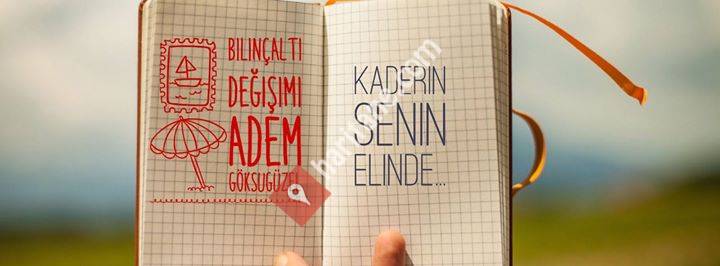 BILINÇALTI
DEĞIŞIMI
ADEM
GÖKSUGÜZEL
KADERIN
SENIN
ELINDE...